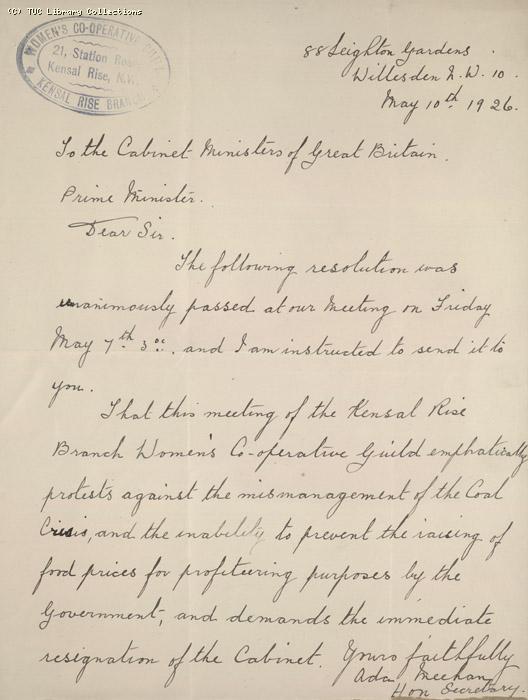 (C) TUC Library Collections
WOMEN'S CO-OPERATIVE GUILD
21, Station Road,
Kensal Rise, N.W.
KENSAL RISE BRANCH
88 Leighton Gardens.
Willesden N.W. 10.
May 10th 1926.
To the Cabinet Ministers of Great Britain.
Prime Minister.
Dear Sir.
The following resolution was
unanimously passed at our Meeting on Friday
May 7th 3 oc. and I am instructed to send it to
you.
That this meeting of the Kensal Rise
Branch Women's Co-operative Guild emphatically
protests against the mismanagement of the Coal
Crisis, and the inability to prevent the raising of
food prices for profiteering purposes by the
Government, and demands the immediate
resignation of the Cabinet. Yours faithfully
Ada Meehan
Hon Secretary.